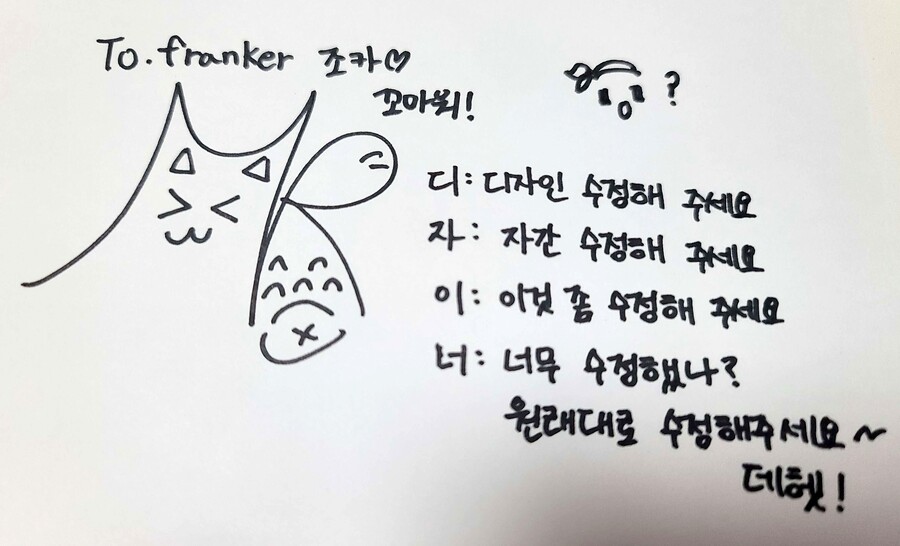 To. franker 조카♡
꼬마워!
?
디: 디자인 수정해 주세요
자: 자간 수정해 주세요
이: 이것 좀 수정해 주세요
너: 너무 수정했나?
원래대로 수정해주세요~
데헷!